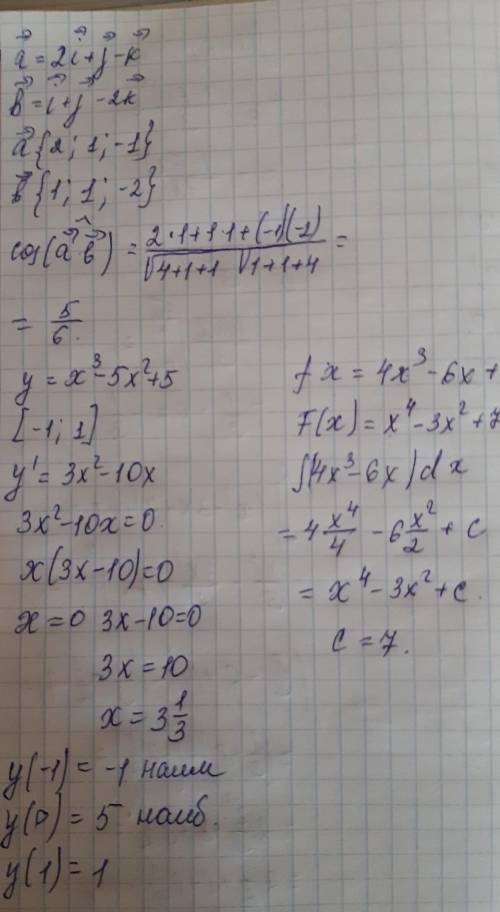 a⃗ = 2i⃗ + j⃗ - k⃗
b⃗ = i⃗ + j⃗ - 2k⃗
a⃗ {2; 1; -1}
b⃗ {1; 1; -2}
cos(a⃗ ^ b⃗) = (2·1+1·1+(-1)(-2))/(√4+1+1 √1+1+4) =
= 5/6.
y = x³-5x²+5
[-1; 1]
y' = 3x²-10x
3x²-10x=0
x(3x-10)=0
x=0 3x-10=0
3x=10
x = 3 1/3
y(-1) = -1 наим
y(0) = 5 наиб.
y(1) = 1
f x = 4x³-6x+
F(x) = x⁴-3x²+7
∫(4x³-6x)dx
= 4 x⁴/4 - 6 x²/2 + c
= x⁴-3x²+c.
c = 7.